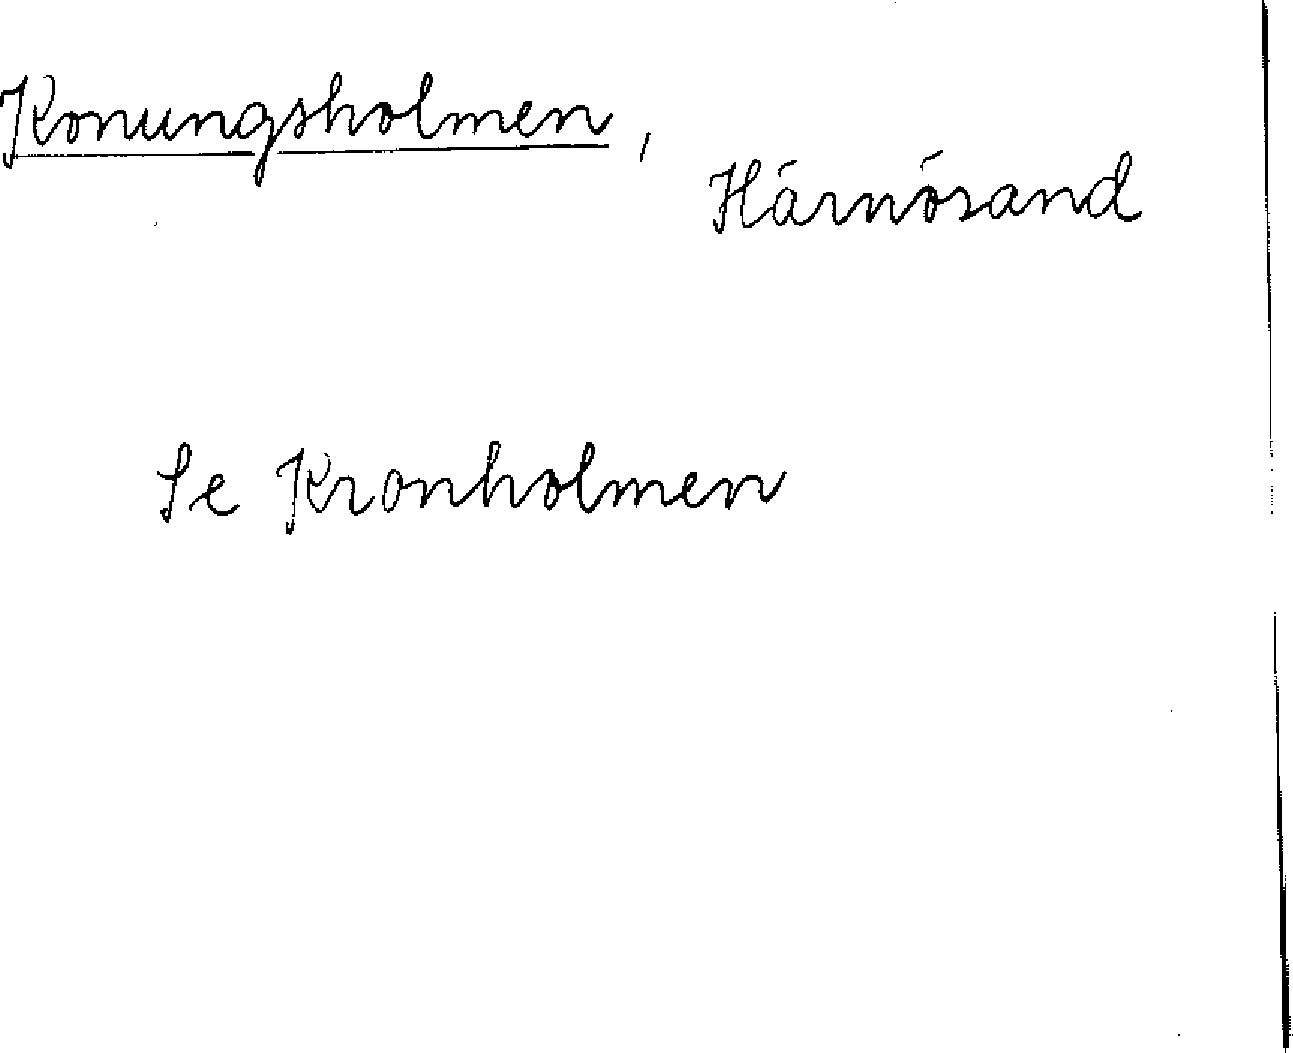 Konungsholmen,
Härnösand
Se Kronholmen